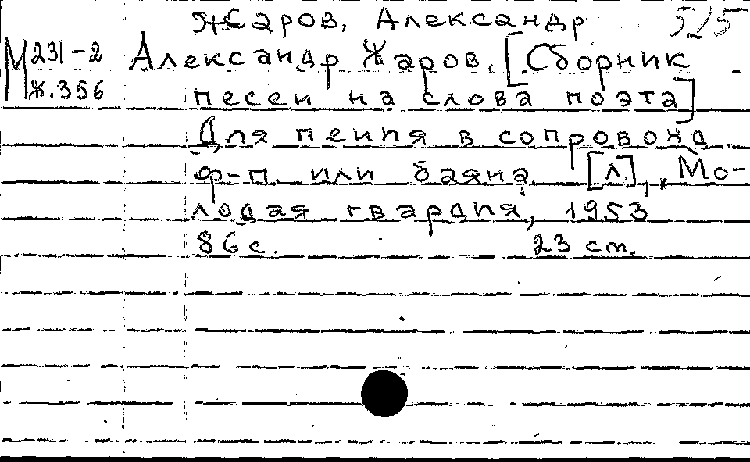 Жаров, Александр 515
М 231-2 Александр Жаров. [Сборник
Ж.356 песен на слова поэта]
Для пения в сопровожд.
ф-п. или баяна [Л.], "Мо-
лодая гвардия", 1953
86 с. 23 cm.